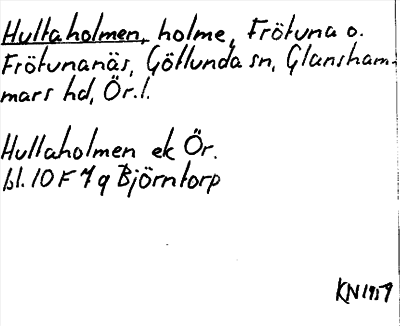 Hultaholmen, holme, Frötuna o.
Frötunanäs, Götlunda sn, Glansham-
mars hd, Ör.l.
Hultaholmen ek Ör.
bl. 10 F 7 g Björntorp
KN 1959